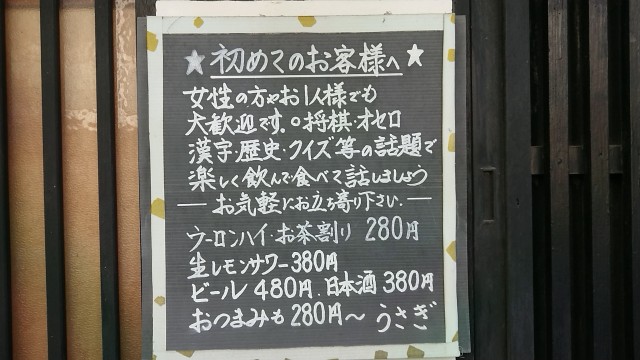 ★初めてのお客様へ★
女性の方やお1人様でも
大歓迎です。○将棋・オセロ
漢字・歴史・クイズ等の話題で
楽しく飲んで食べて話しましょう
―お気軽にお立ち寄り下さい.―
ウーロンハイ・お茶割り 280円
生レモンサワー380円
ビール 480円.日本酒 380円
おつまみも280円～ うさぎ